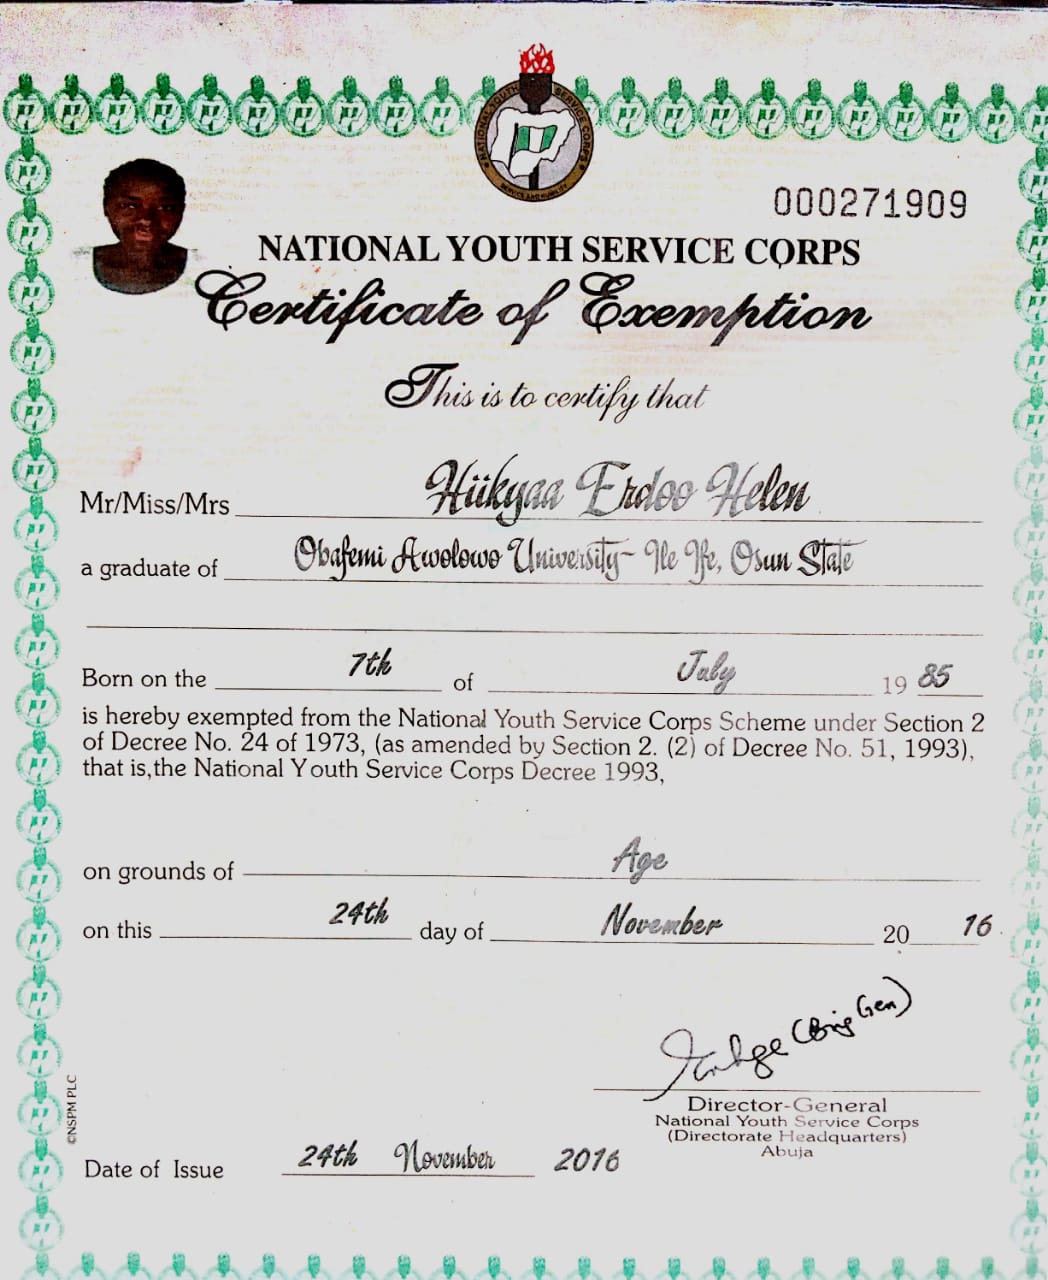 NATIONAL YOUTH SERVICE CORPS
000271909
NATIONAL YOUTH SERVICE CORPS
Certificate of Exemption
This is to certify that
Mr/Miss/Mrs Hiikyaa Erdoo Helen
a graduate of Obafemi Awolowo University- Ile Ife, Osun State
Born on the 7th of July 19 85
is hereby exempted from the National Youth Service Corps Scheme under Section 2
of Decree No. 24 of 1973, (as amended by Section 2. (2) of Decree No. 51, 1993),
that is,the National Youth Service Corps Decree 1993,
on grounds of Age
on this 24th day of November 20 16
(Brig Gen)
Director-General
National Youth Service Corps
(Directorate Headquarters)
Abuja
Date of Issue 24th November 2016
©NSPM PLC